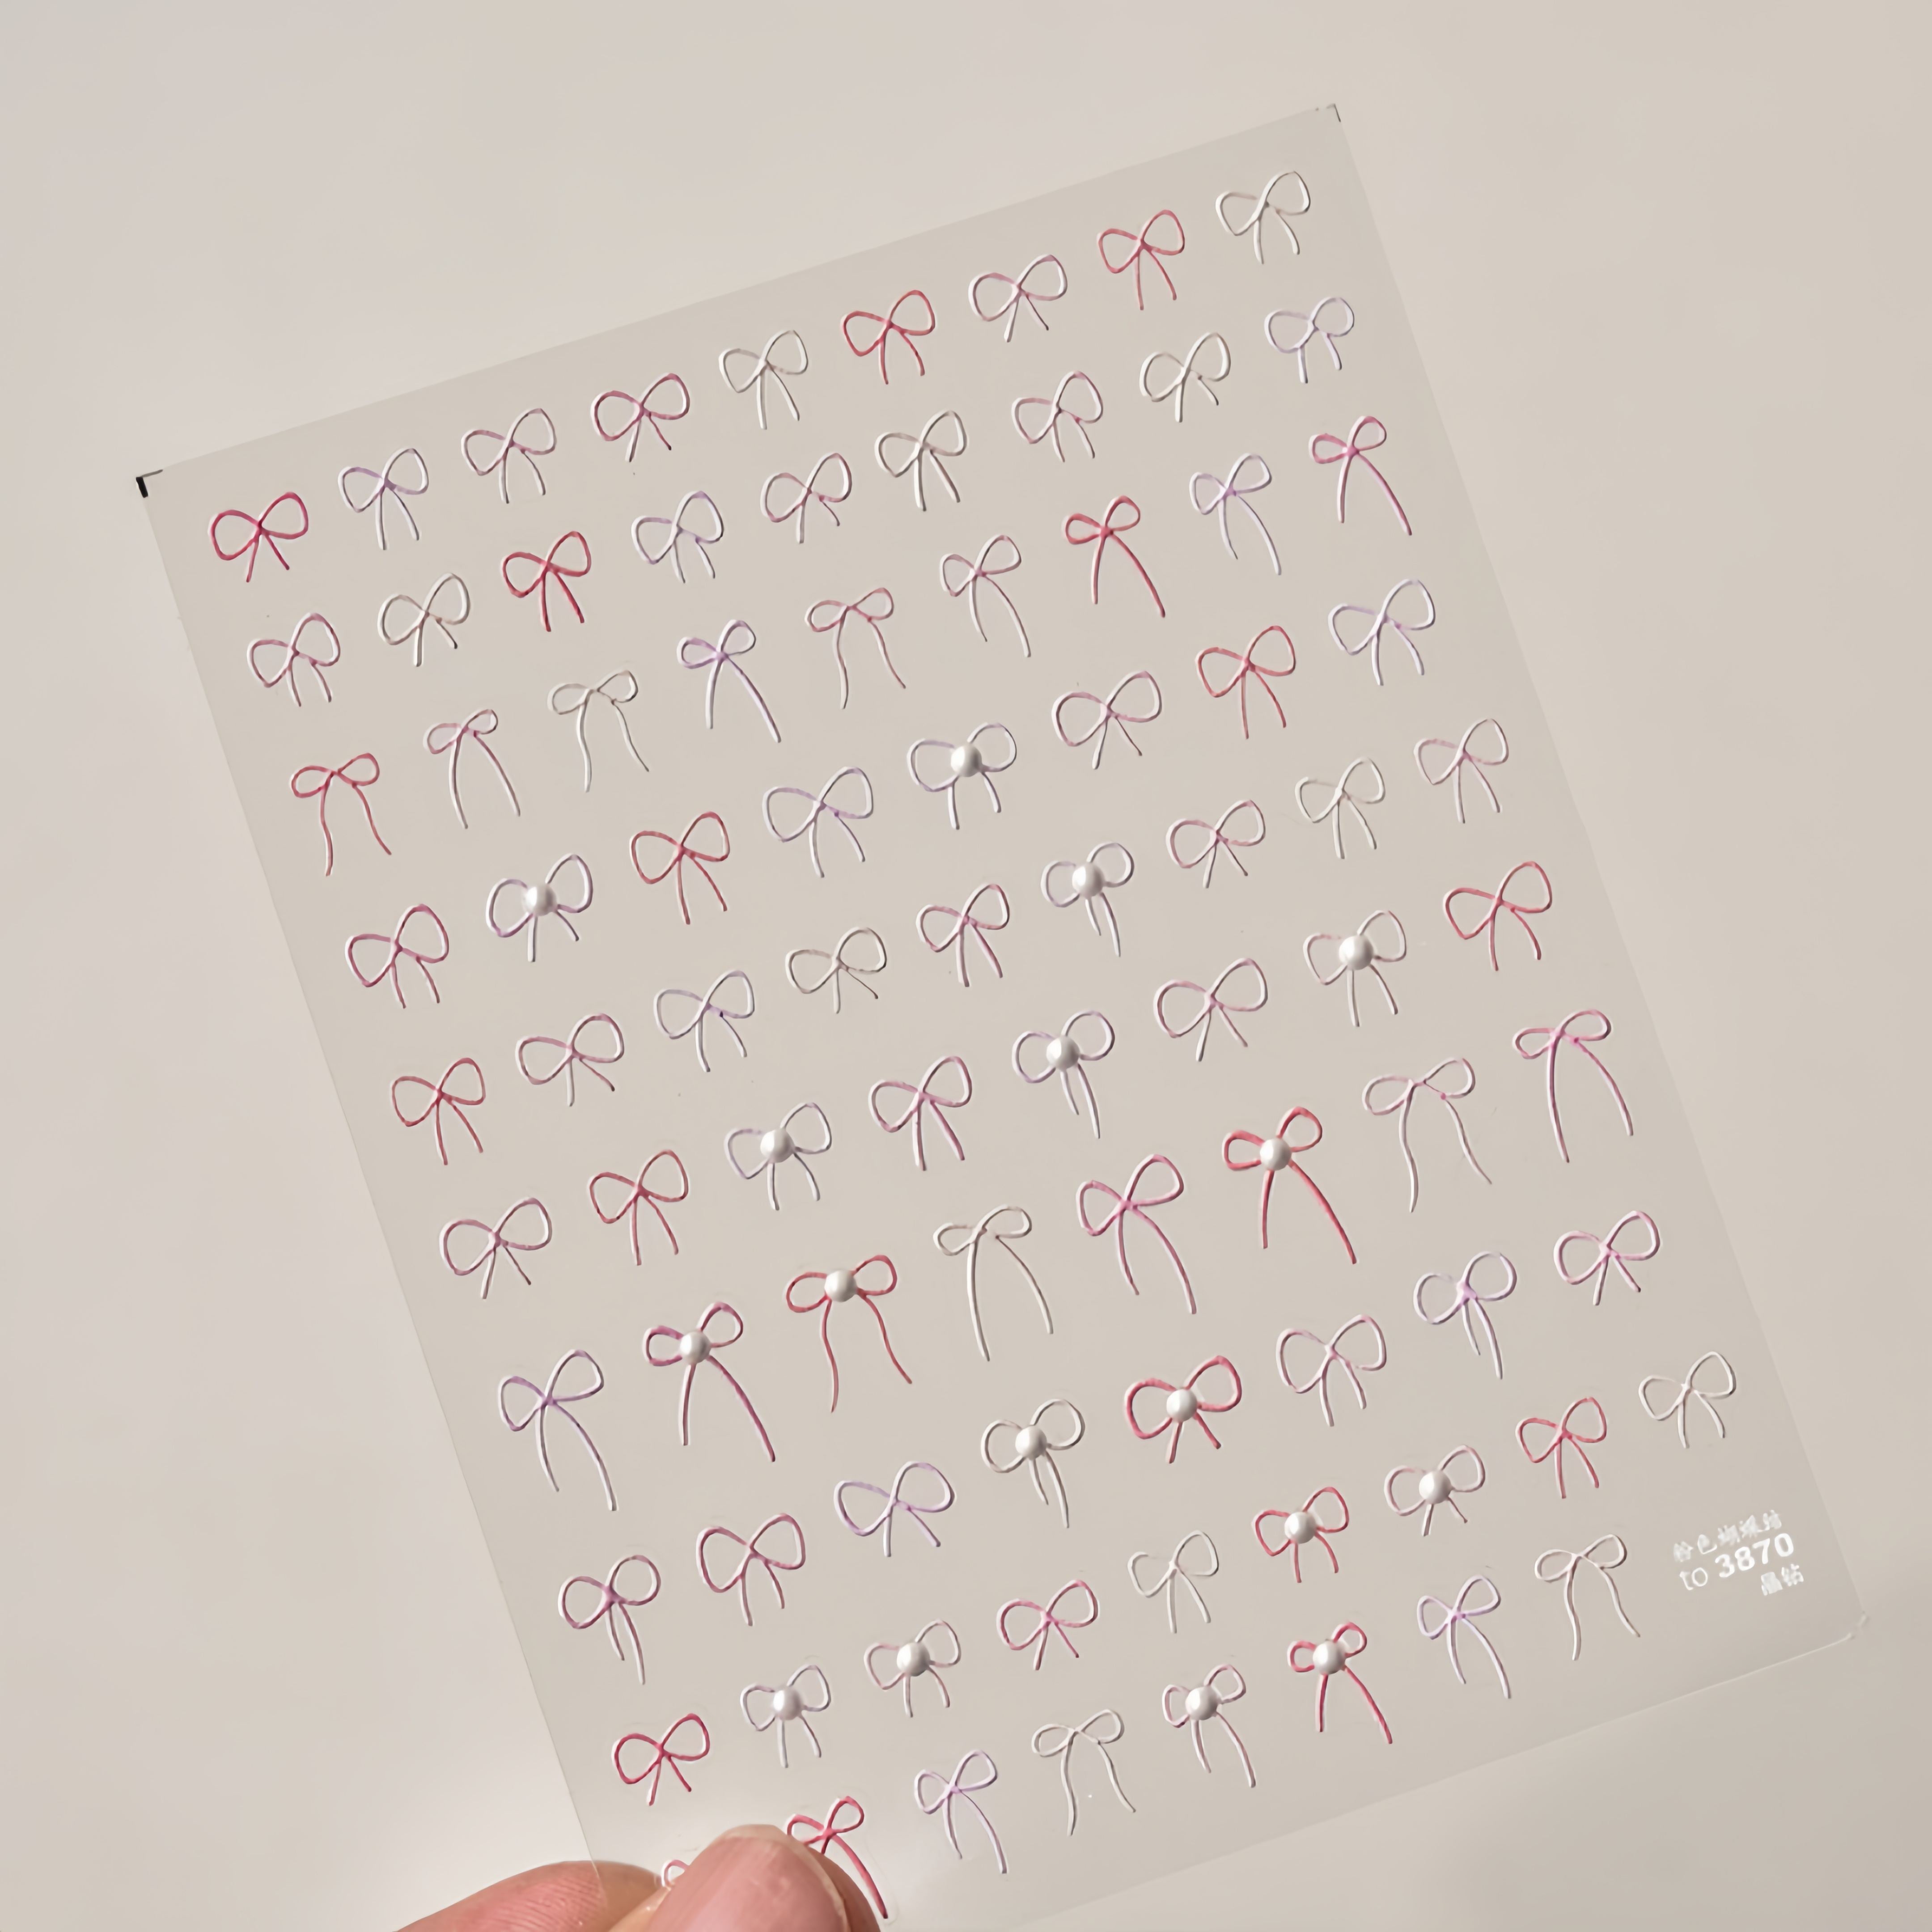 粉色蝴蝶结
to 3870
晶钻